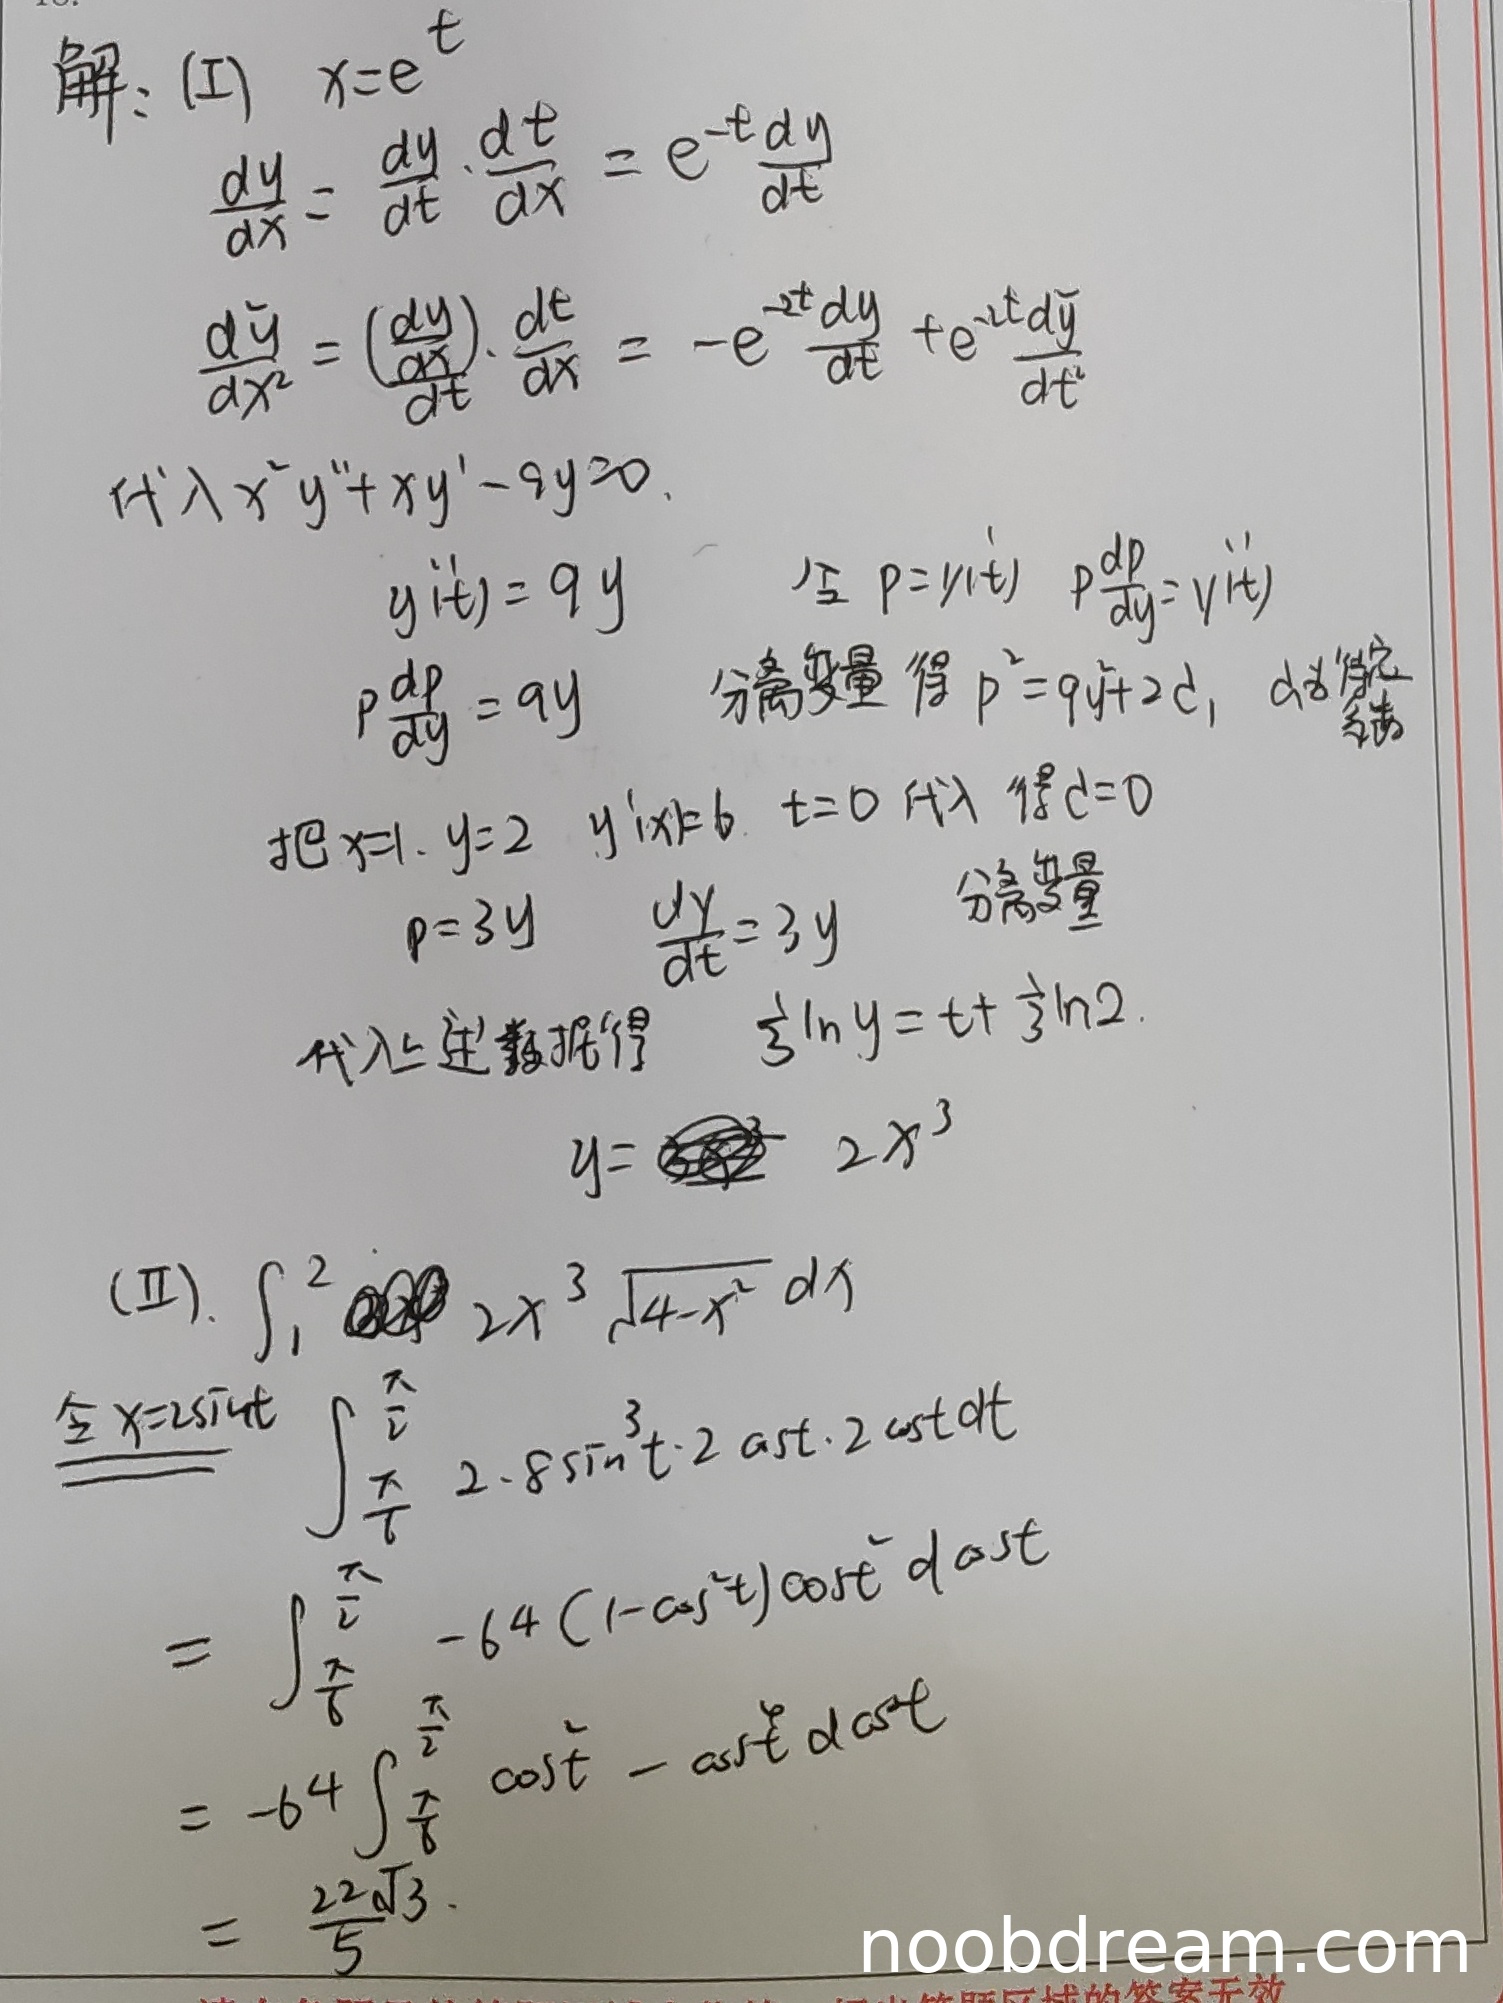 解：(I) x=e^t
dy/dx = dy/dt · dt/dx = e^{-t} dy/dt
d²y/dx² = (dy/dx)/dt · dt/dx = -e^{-2t} dy/dt + e^{-2t} d²y/dt²
代入 x²y''+xy'-9y=0.
y''(t) = 9y 令 p=y'(t) p dp/dy = y''(t)
p dp/dy = 9y 分离变量 得 p²=9y²+2C, C为待定系数
把 x=1. y=2 y'(x)=6. t=0 代入 得 C=0
p=3y dy/dt=3y 分离变量
代入上述数据得 1/3 ln y = t + 1/3 ln 2.
y= 2x³
(II). ∫₁² 2x³ √(4-x²) dx
令 x=2sint ∫_{π/6}^{π/2} 2·8sin³t·2cost·2costdt
= ∫_{π/6}^{π/2} -64(1-cos²t)cost² dcost
= -64 ∫_{π/6}^{π/2} cost² - cost⁴ dcost
= 22√3/5.
noobdream.com